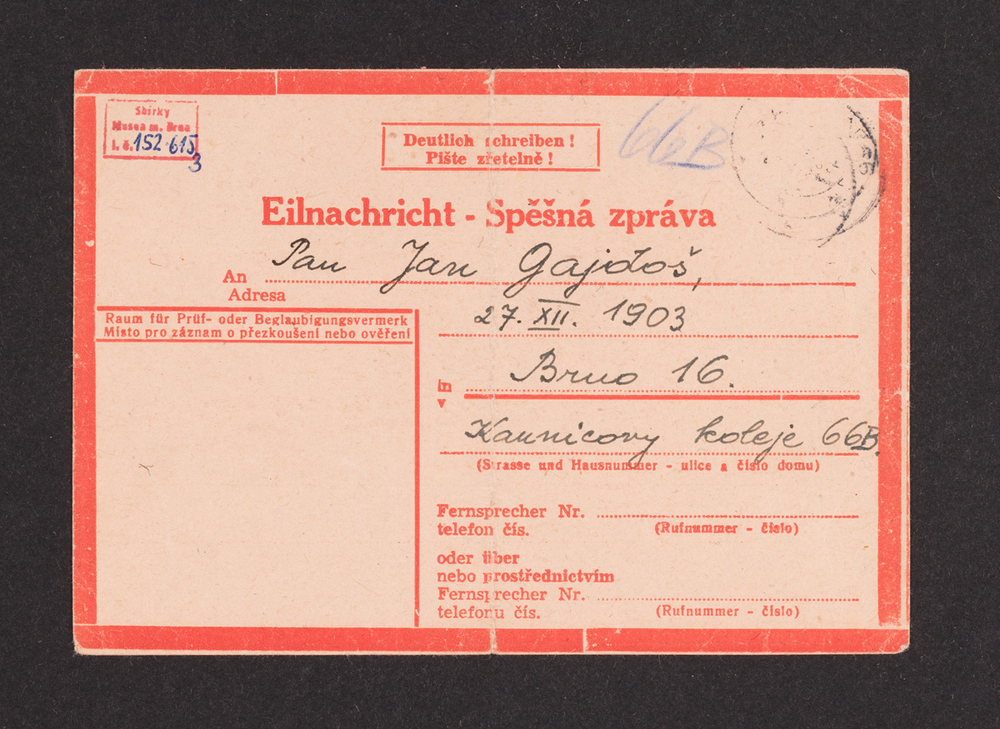 Sbírky
Musea m. Brna
i. č. 152.615
3
Deutlich schreiben!
Pište zřetelně!
66B
Eilnachricht - Spěšná zpráva
An Pan Jan Gajdoš,
Adresa
27. XII. 1903
Raum für Prüf- oder Beglaubigungsvermerk
Místo pro záznam o přezkoušení nebo ověření
in Brno 16.
v
Kaunicovy koleje 66B.
(Strasse und Hausnummer - ulice a číslo domu)
Fernsprecher Nr.
telefon čís. (Rufnummer - číslo)
oder über
nebo prostřednictvím
Fernsprecher Nr.
telefonu čís. (Rufnummer - číslo)